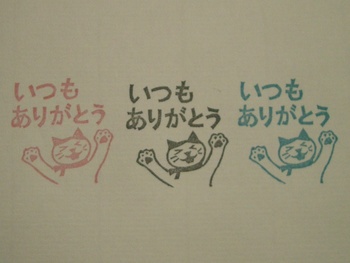 いつも
ありがとう
いつも
ありがとう
いつも
ありがとう